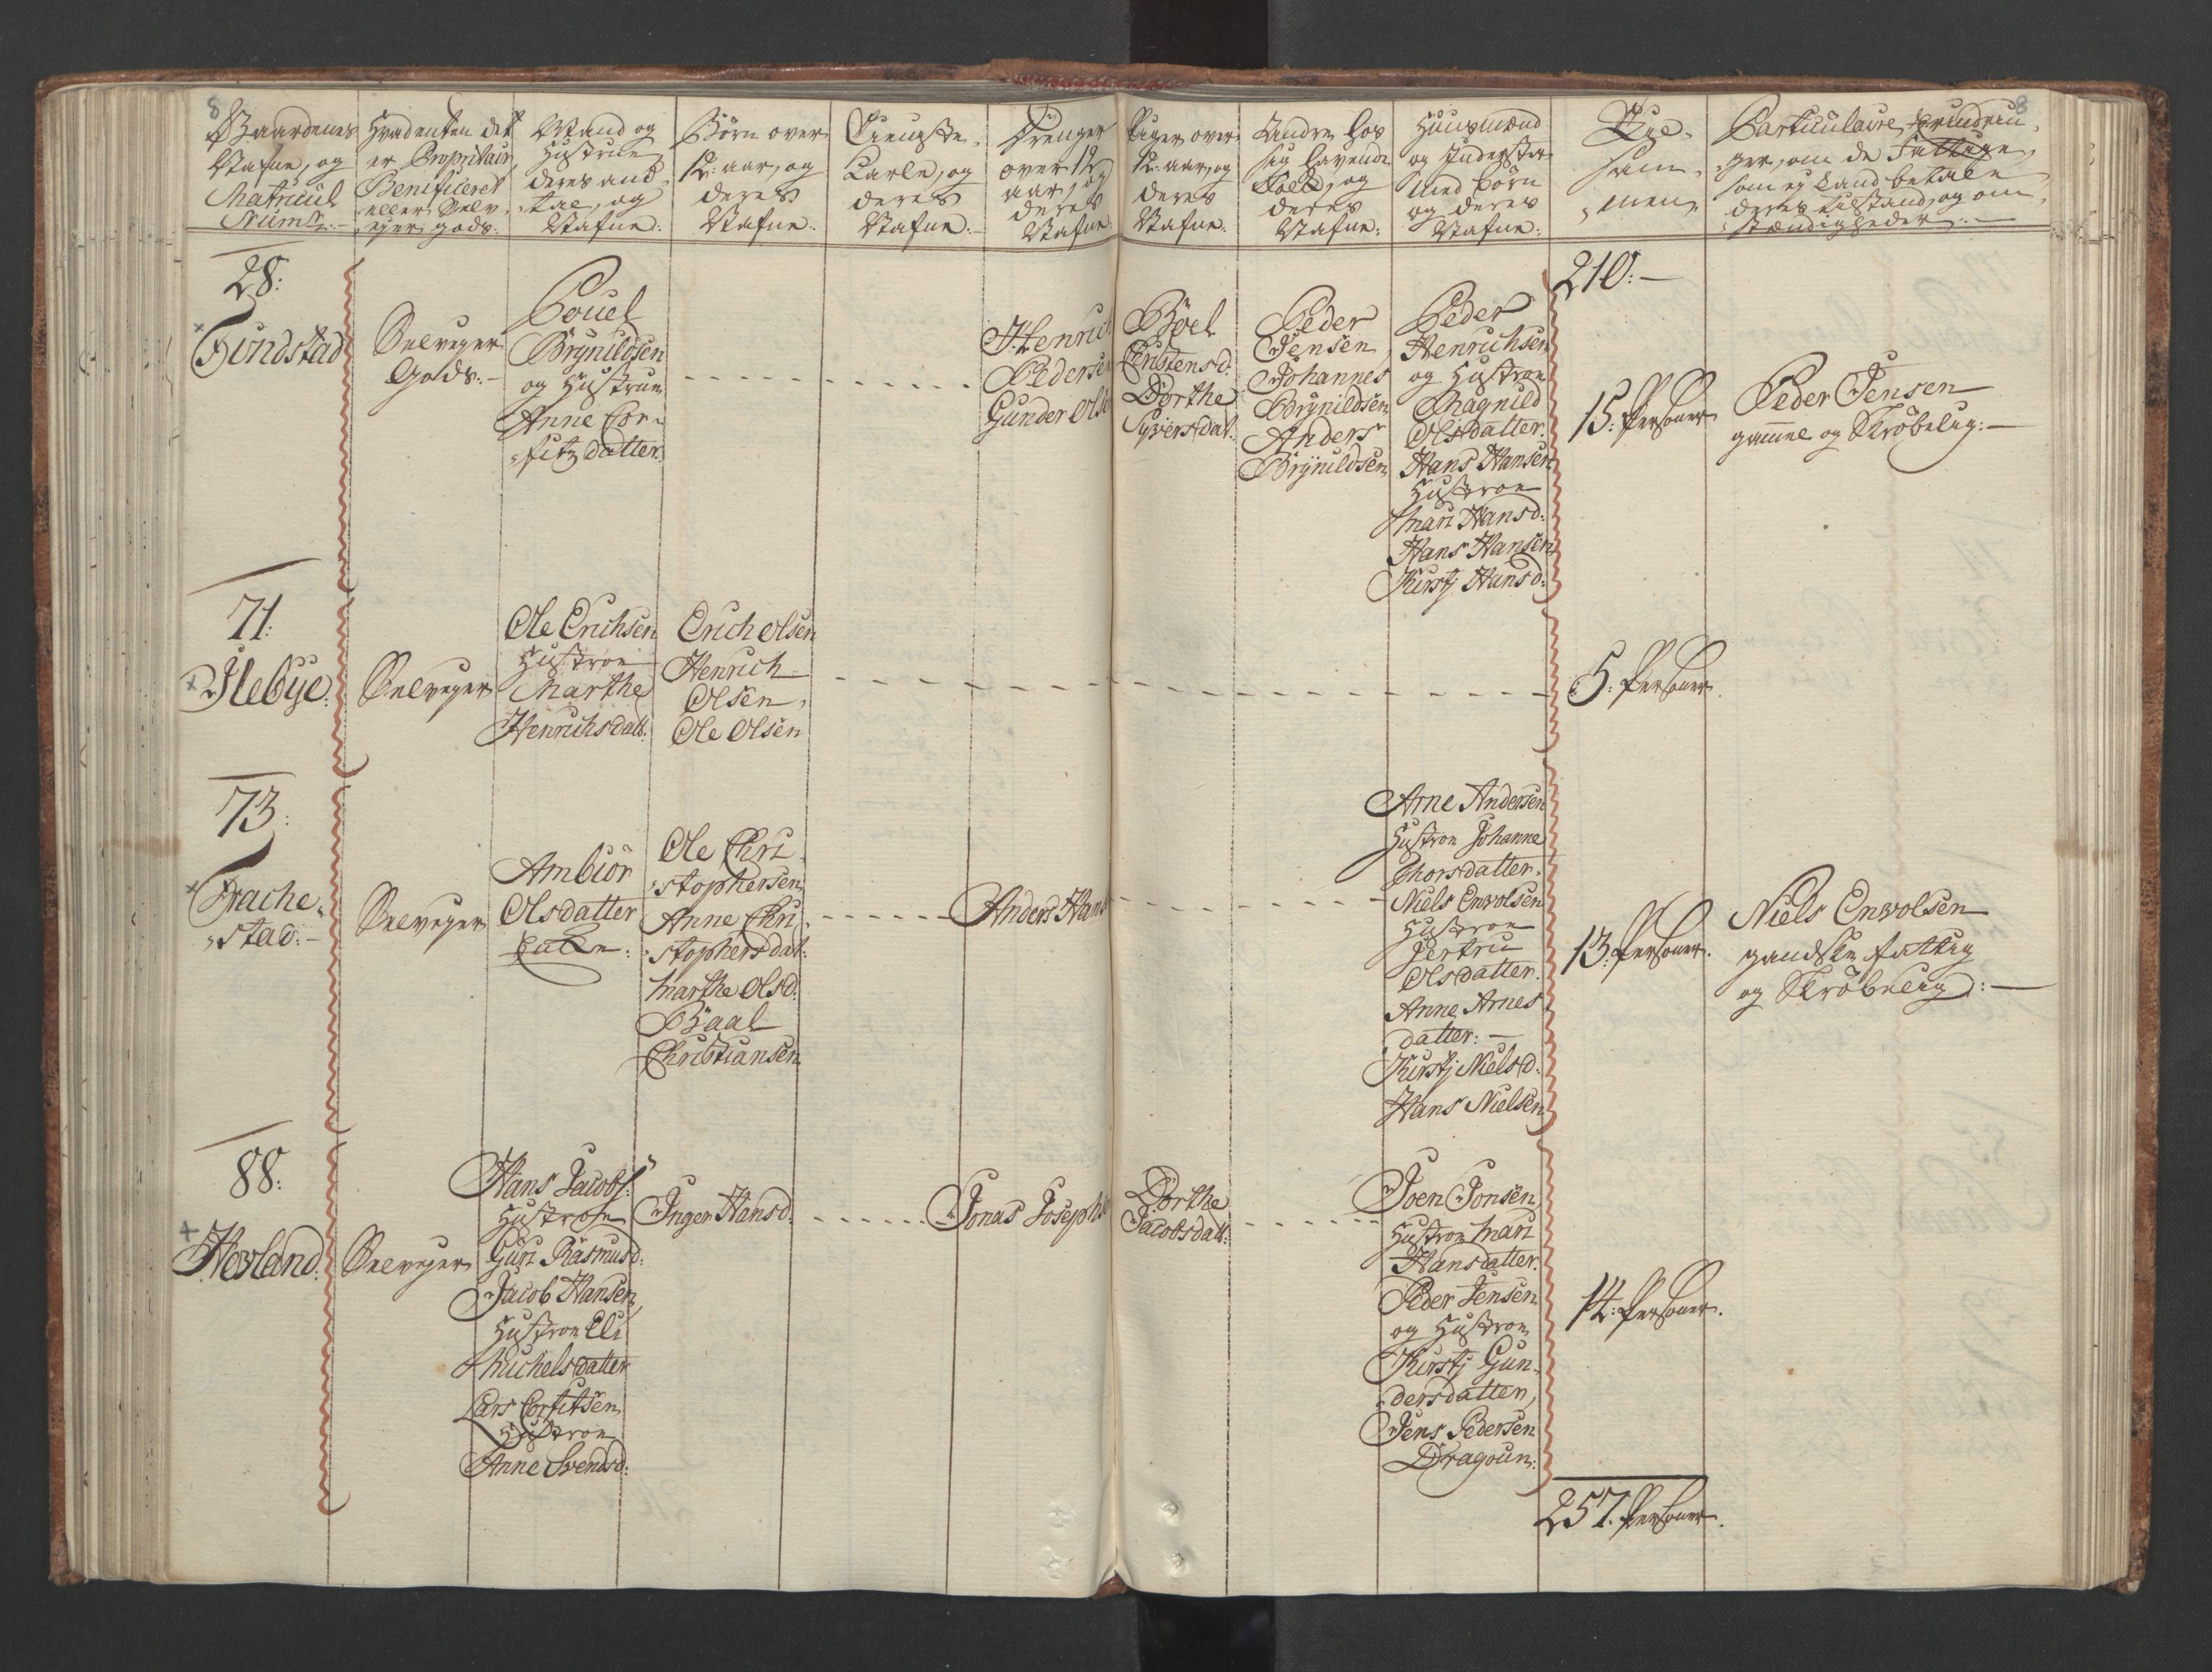 8
Gaardenes
Nafne, og
Matricul
Numr:
Hvad enten det
er Propritair,
Benificeret
eller Selv-
ejer gods:
Mand og
Hustrue
deres an-
tal, og
Nafne:
Börn over
12: aar, og
deres
Nafne:
Tieneste
Karle, og
deres
Nafne:
Drenger
over 12
aar, og
deres
Nafne:
Piger over
12: aar, og
deres
Nafne:
Andre hos
sig havende
Folk, og
deres
Nafne:
Huusmænd
og Inderster
med börn
og deres
Nafne:
Til-
sam-
men,
8
Particulaire
ger, om de Fattige,
som ej kand betale
deres tilstand, og om-
stændigheder:
28:
Findstad
Selvejer
Gods:
Pouel
Brynildsen
og Hustrue
Anne Cor-
fitz datter:
Henrich
Pedersen
Gunder Olse
Böel
Christensd:
Dorthe
Syversdat:
Peder
Jensen
Johannes
Brynildsen
Anders
Brynildsen
Peder
Henrichsen
og Hustroe
Magnild
Olsdatter:
Hans Hansen
Hustroe
Mari Hansd:
Hans Hansen
Kirstj Hansd:
210:
15: Persohner
Peder Jensen
gamel og Skröbelig:
71:
Ilebÿe:
Selvejer
Ole Erichsen
Hustroe
Marthe
Henrichsdatt:
Erich Olsen
Henrich
Olsen,
Ole Olsen
5: Persohner.
73:
Frache-
stad:
Selvejer
Ambiör
Olsdatter
Encke:
Ole Chri-
stophersen
Anne Chri-
stophersdat:
Marthe Olsd:
Paal
Christiansen
Anders Hans
Arne Andersen
Hustroe Johanne
Thorsdatter.
Niels Enwolsen
Hustroe
Jertru
Olsdatter.
Anne Arnes
datter:
Kirstj Nielsd:
Hans Nielsen
13: Persohner.
Niels Enwolsen
gandske fattig
og Skröbelig:
88:
Hovland:
Selvejer
Hans Jacobs:
Hustroe
Guri Rasmusd:
Jacob Hansen
Hustroe Eli
Michelsdatter
Lars Corfitsen
Hustroe
Anne Svendsd:
Inger Hansd:
Jonas Josephs
Dorthe
Jacobsdatt:
Joen Jonsen,
Hustroe Mari
Hansdatter.
Peder Jensen
og Hustroe
Kirstj Gun-
dersdatter,
Jens Pedersen
Dragoun:
14: Persohner.
257. Persohner.